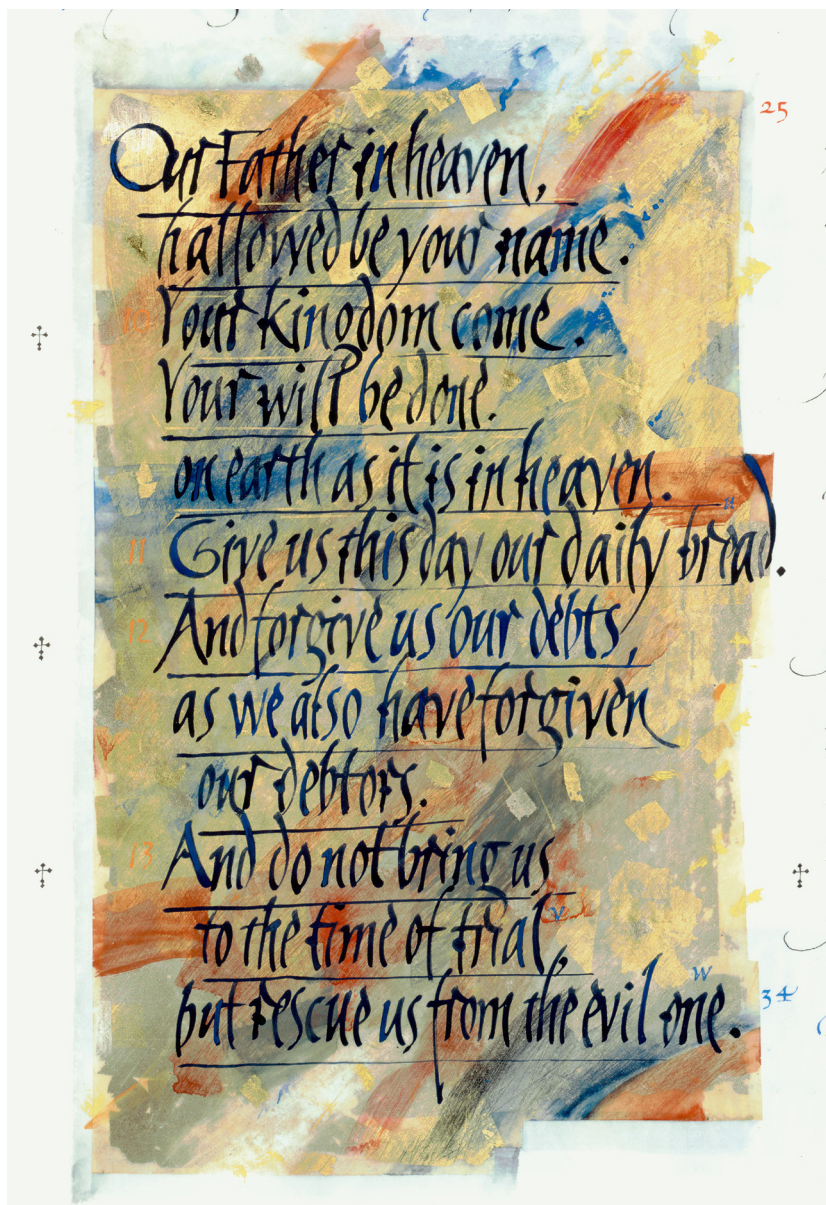 25
Our Father in heaven,
hallowed be your name.
10 Your kingdom come.
Your will be done.
on earth as it is in heaven.
u
11 Give us this day our daily bread.
12 And forgive us our debts,
as we also have forgiven
our debtors.
13 And do not bring us
to the time of trial, v
w
34
but rescue us from the evil one.